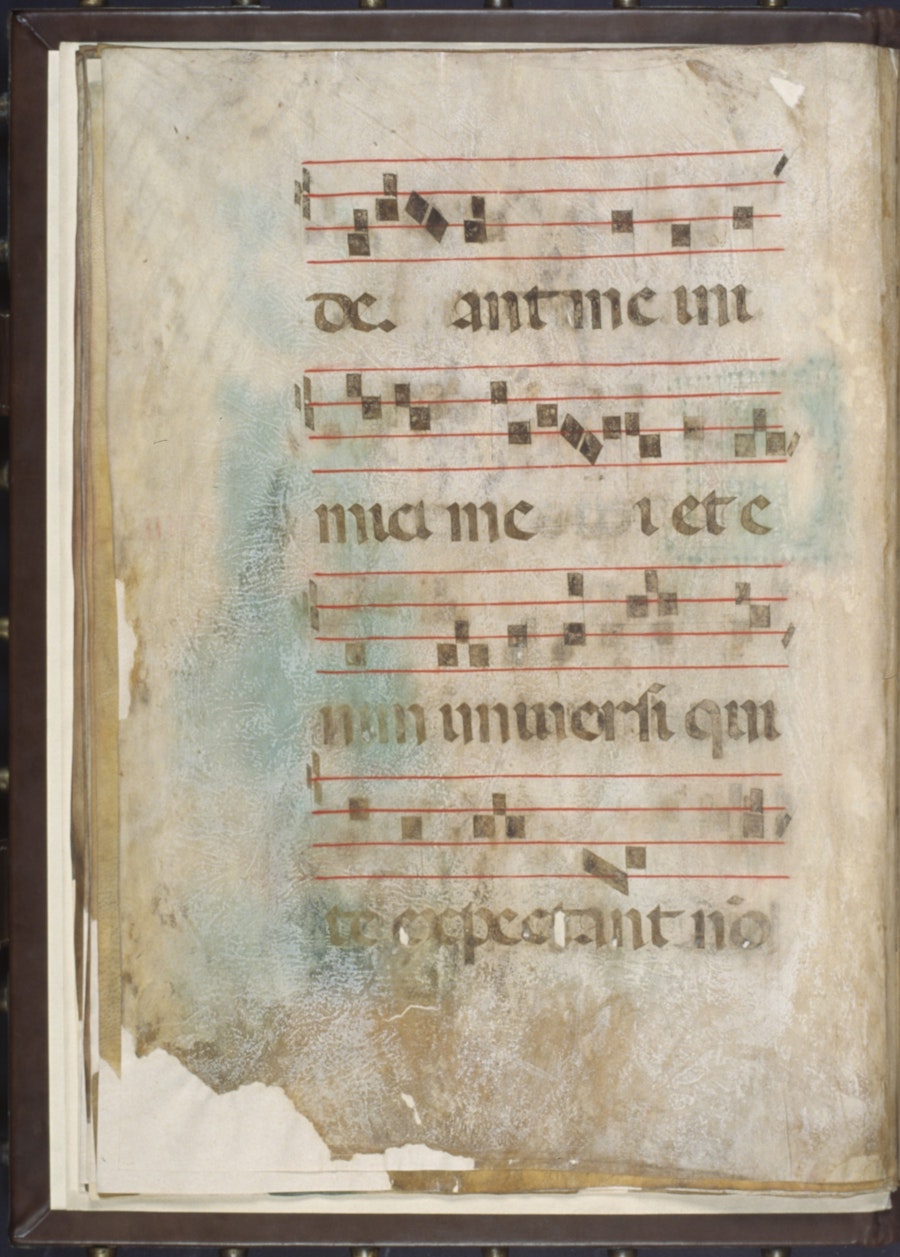 de. ant me ini
mici me i et e
nim universi qui
te expectant nõ